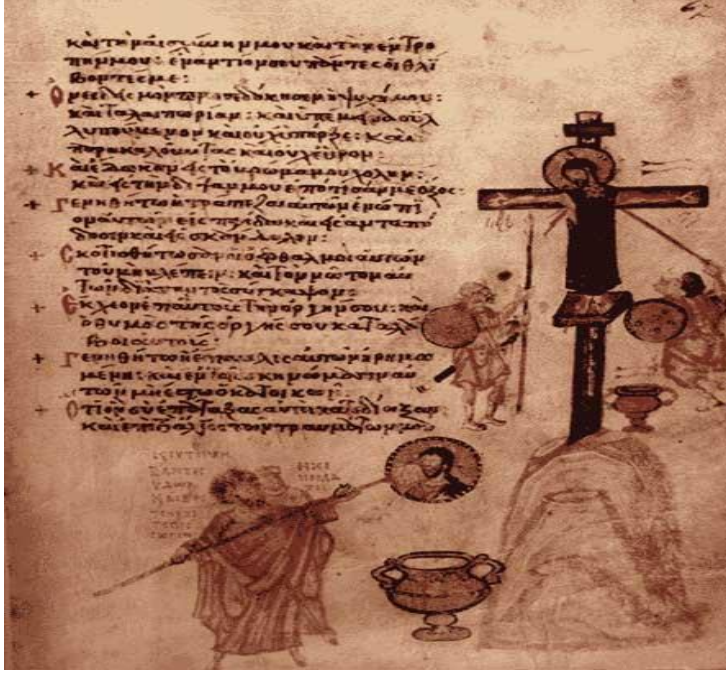 καὶ τὴν αἰσχύνην μου καὶ τὴν ἐντρο
πήν μου: ἐναντίον σου πάντες οἱ θλί
βοντές με:
+ Ὀνειδισμὸν προσεδόκησεν ἡ ψυχή μου:
καὶ ταλαιπωρίαν: καὶ ὑπέμεινα συλ
λυπούμενον καὶ οὐχ ὑπῆρξε: καὶ
παρακαλοῦντας καὶ οὐχ εὗρον:
+ Καὶ ἔδωκαν εἰς τὸ βρῶμα μου χολήν:
καὶ εἰς τὴν δίψαν μου ἐπότισάν με ὄξος:
+ Γενηθήτω ἡ τράπεζα αὐτῶν ἐνώπι
ον αὐτῶν εἰς παγίδα καὶ εἰς ἀνταπό
δοσιν καὶ εἰς σκάνδαλον:
+ Σκοτισθήτωσαν οἱ ὀφθαλμοὶ αὐτῶν
τοῦ μὴ βλέπειν: καὶ τὸν νῶτον αὐ
τῶν διὰ παντὸς σύγκαμψον:
+ Ἔκχεον ἐπ' αὐτοὺς τὴν ὀργήν σου: καὶ
ὁ θυμὸς τῆς ὀργῆς σου καταλά
βοι αὐτούς:
+ Γενηθήτω ἡ ἔπαυλις αὐτῶν ἠρημω
μένη: καὶ ἐν τοῖς σκηνώμασιν αὐ
τῶν μὴ ἔστω ὁ κατοικῶν:
+ Ὅτι ὃν σὺ ἐπάταξας αὐτοὶ κατεδίωξαν:
καὶ ἐπὶ τὸ ἄλγος τῶν τραυμάτων μου